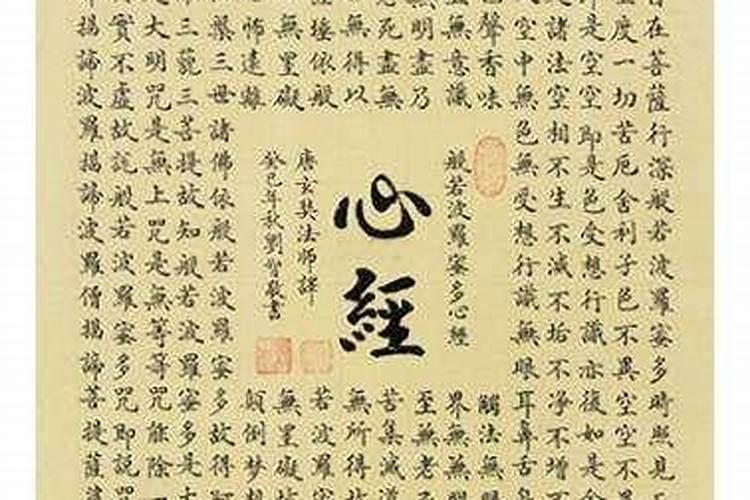 在菩薩行深般若波羅蜜多時照見
度一切苦厄舍利子色不異空空不
即是空空即是色受想行識亦復如是舍
諸法空相不生不滅不垢不淨不增不
空中無色無受想行識無眼耳鼻舌身
聲香味
觸法無眼
無意識
界無無明
無明盡乃
至無老死
死盡無
苦集滅道
無得以
無所得故
埵依般
若波羅蜜
無罣礙
無罣礙故
怖遠離
顛倒夢想
般若波羅蜜多心經
心經
唐玄奘法師譯
癸巳年秋劉智書
槃三世諸佛依般若波羅蜜多故得阿
三藐三菩提故知般若波羅蜜多是大
是大明咒是無上咒是無等等咒能除一
實不虛故說般若波羅蜜多咒即說咒
揭諦波羅揭諦波羅僧揭諦菩提薩婆